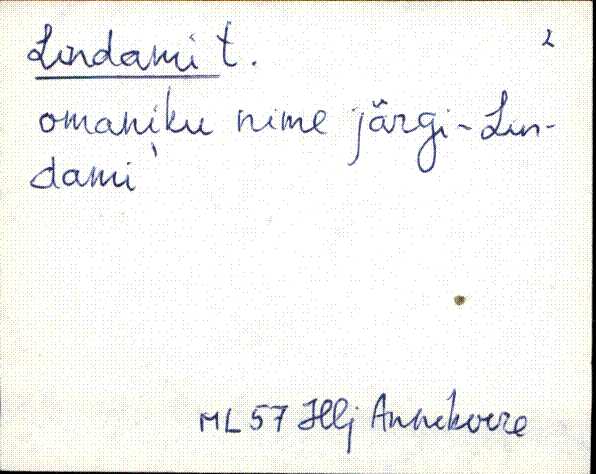 Lindami t. 2
omaniku nime järgi - Lin-
dami
ML 57 Hlj Annekvere